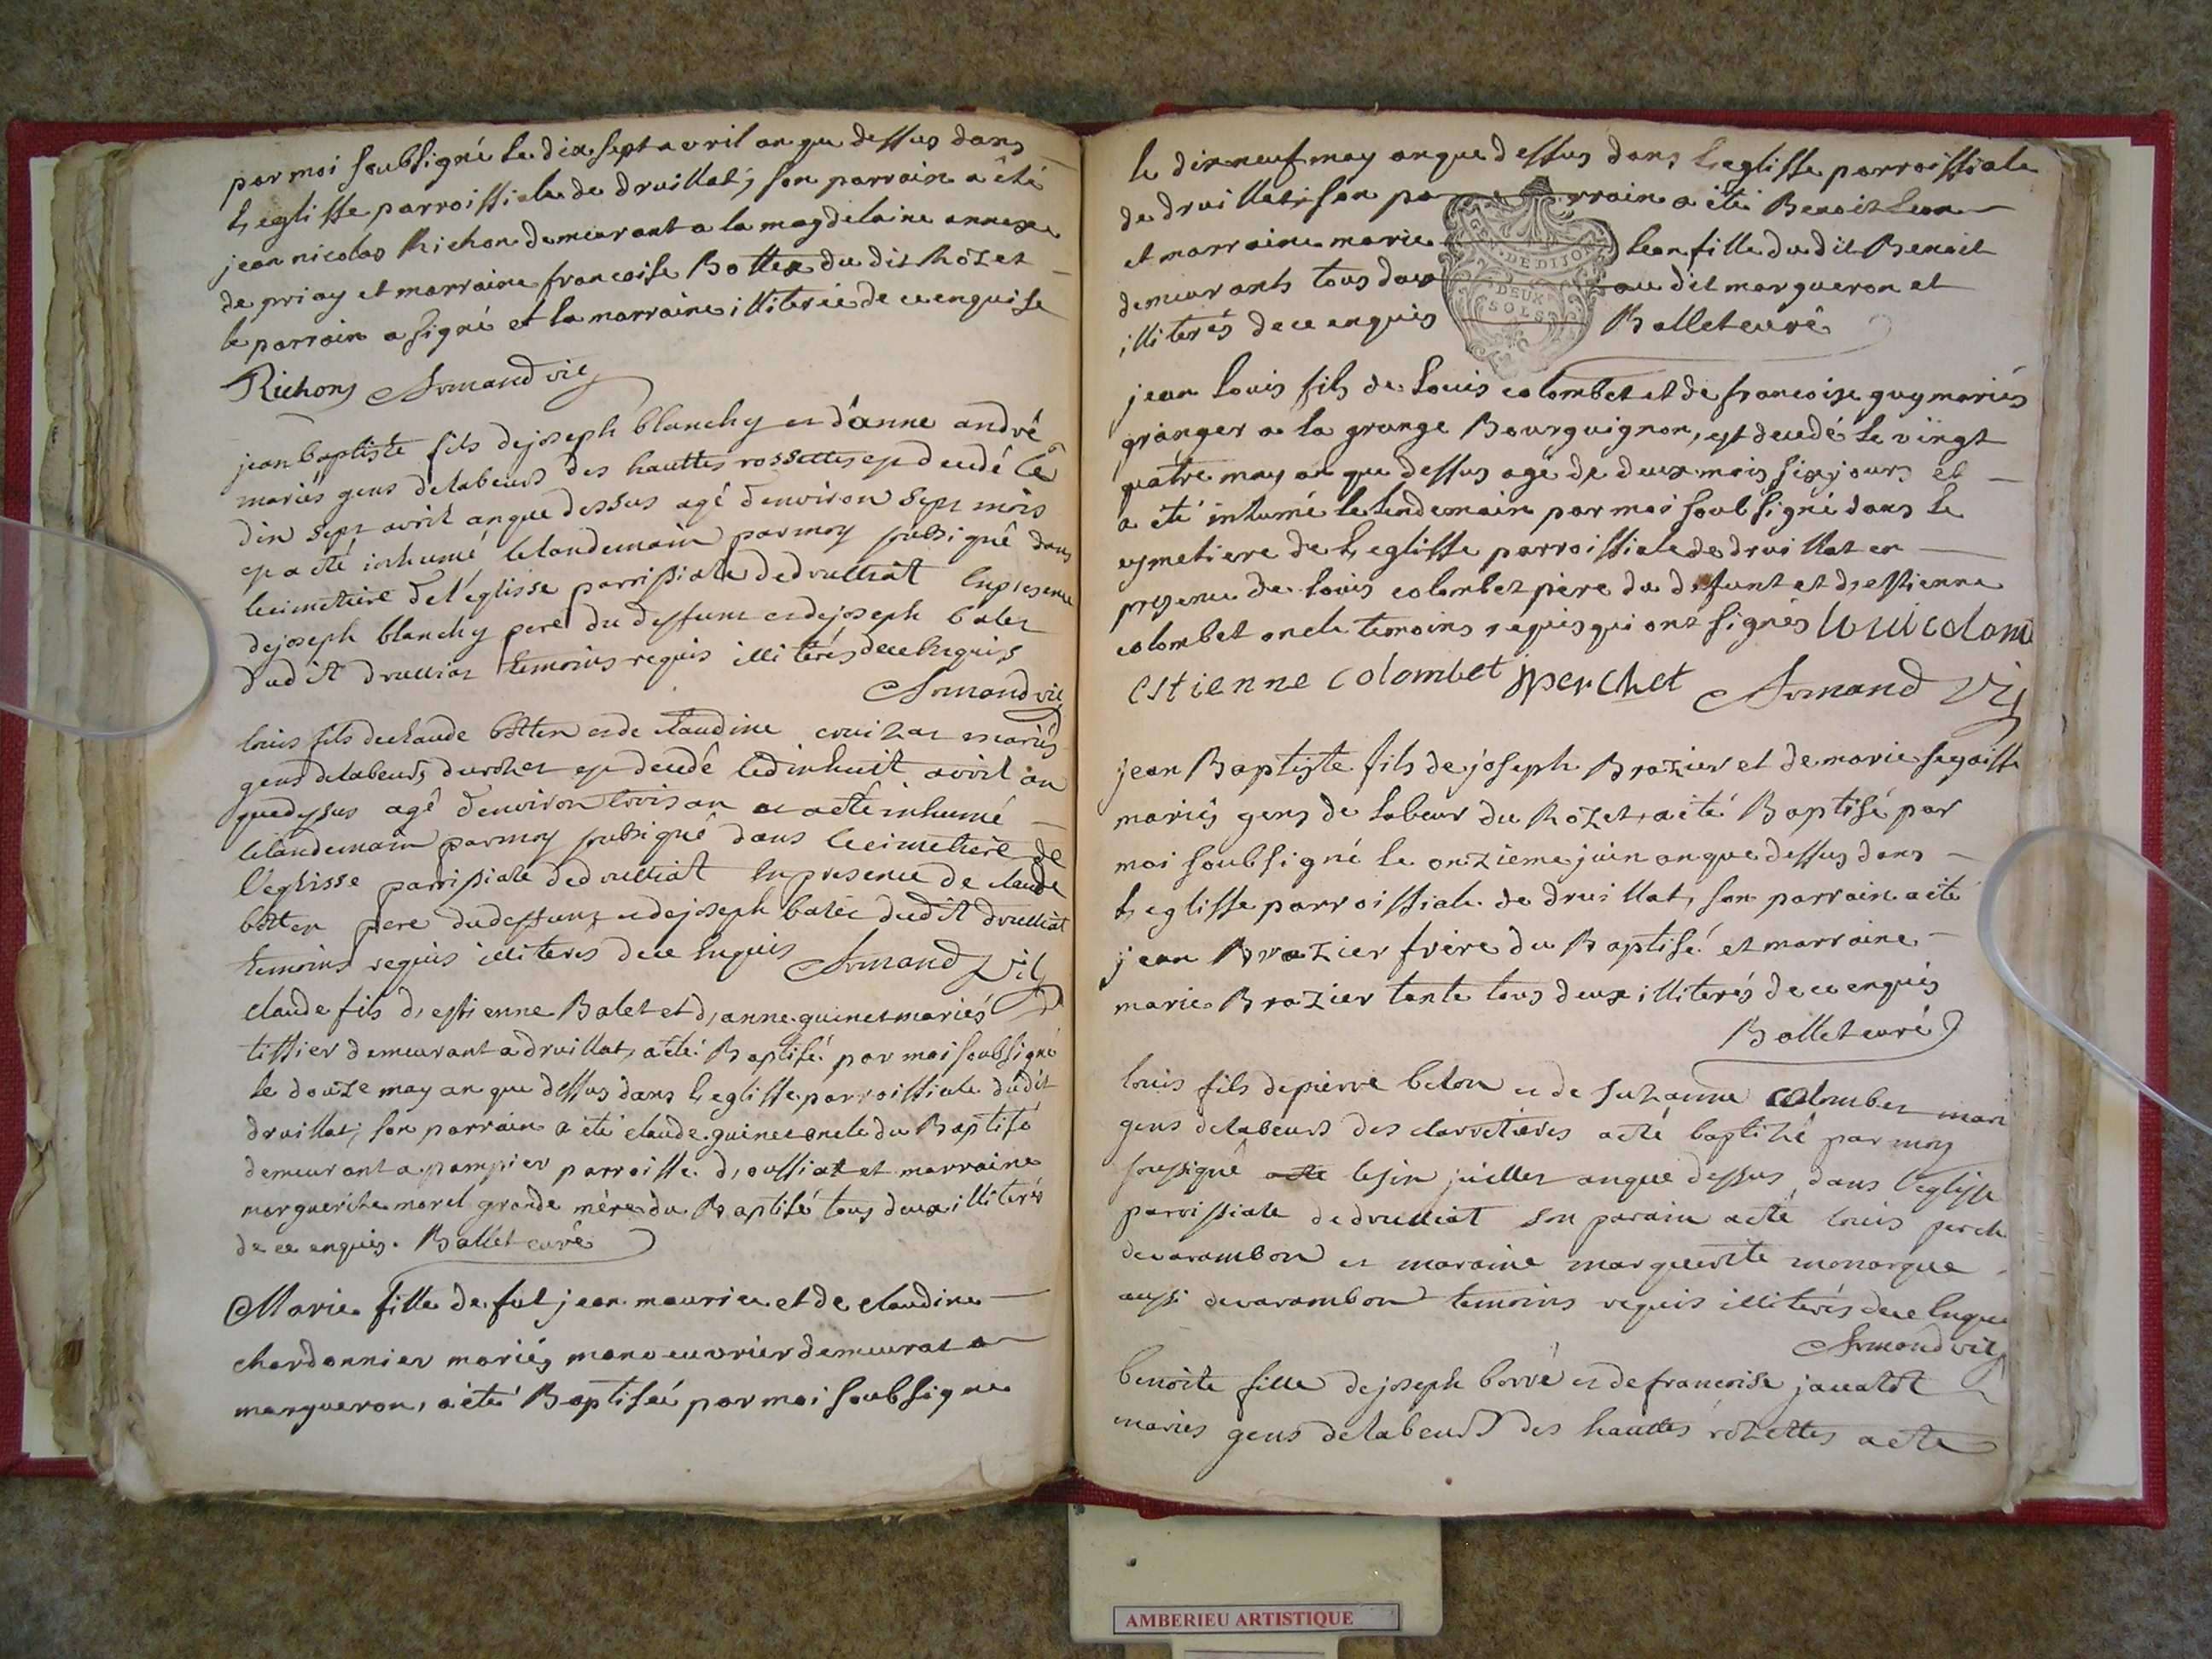 par moi soubsigné le dix sept avril an que dessus dans
l, eglisse parroissiale de druillat, son parrain a été
jean nicolas Richon demeurant a la magdelaine annexe
de priay et marraine francoise Bottex du dit Rozet
le parrain a signé et la marraine illiterée de ce enquise
Richon Armand vic
jean baptiste fils de joseph blanchy et d'anne andré
mariés gens delabeurs des hauttes rossettes est decedé le
dix sept avril an que dessus agé denviron sept mois
et a eté inhumé le landemain par moy subsigné dans
le cimetiere de l'églisse parrissiale de druilliat en presence
de joseph blanchy pere du deffunt et de joseph balet
dudit druilliat temoins requis illiterés de ce enquis
Armand vic
louis fils de claude bottex et de claudine mariés
gens delabeurs du rozet est decedé le dix huit avril an
que dessus agé denviron trois an et a eté inhumé
le landemain par moy subsigné dans le cimetiere de
l'eglisse parrissiale de druilliat en presence de claude
bottex pere du deffunt et de joseph balet dudit druilliat
temoins requis illiteres de ce enquis Armand vic
claude fils d, estienne Balet et d, anne guinet mariés
tissier demeurant a druillat, a eté Baptisé par moi soubsigné
le douze may an que dessus dans l, eglisse parroissiale dudit
druillat, son parrain a été claude guinet oncle du Baptisé
demeurant a pampier parroisse d, oussiat et marraine
marguerite morel grande mère du Baptisé tous deux illiterés
de ce enquis. Ballet curé
Marie fille de fut jean maurice et de claudine
chardonnier mariés manoeuvrier demeurat a
margueron, a été Baptisée par moi soubsigne
le dix neuf may an que dessus dans l, eglisse parroissiale
de druillat, son pa rrain a été Benoit Leon
et marraine marie Leon fille du dit Benoit
demeurants tous deux au dit margueron et
illiterés de ce enquis Ballet curé
GEN. DE DIJON
DEUX
SOLS
jean Louis fils de Louis colombet et de francoise guy mariés
granger a la grange Bourguignon, est decedé le vingt
quatre may an que dessus agé de deux mois six jours et
a été inhumé le lendemain par moi soubsigné dans le
cymetiere de l, eglisse parroissiale de druillat en
presence de Louis colombet père du defunt et d, estienne
colombet oncle temoins requis qui ont signés loui colom
estienne colombet perchet Armand vic
jean Baptiste fils de joseph Brazier et de marie
mariés gens de labeur du Rozet, a été Baptisé par
moi soubsigné le onzieme juin an que dessus dans
l, eglisse parroissiale de druillat, son parrain a été
jean Brazier frère du Baptisé et marraine
marie Brazier tante tous deux illiterés de ce enquis
Ballet curé
louis fils de pierre belon et de suzanne colombet mari
gens delabeurs des clarretieres a eté baptizé par moy
soussigné le six juillet an que dessus dans l'eglisse
parrissiale de druilliat son parain a eté louis perch
de varambon et maraine marguerite monarque
aussi de varambon temoins requis illiterés de ce enque
Armand vic
benoite fille de joseph borré et de francoise jacatot
mariés gens delabeurs des hauttes rozettes a eté
AMBERIEU ARTISTIQUE